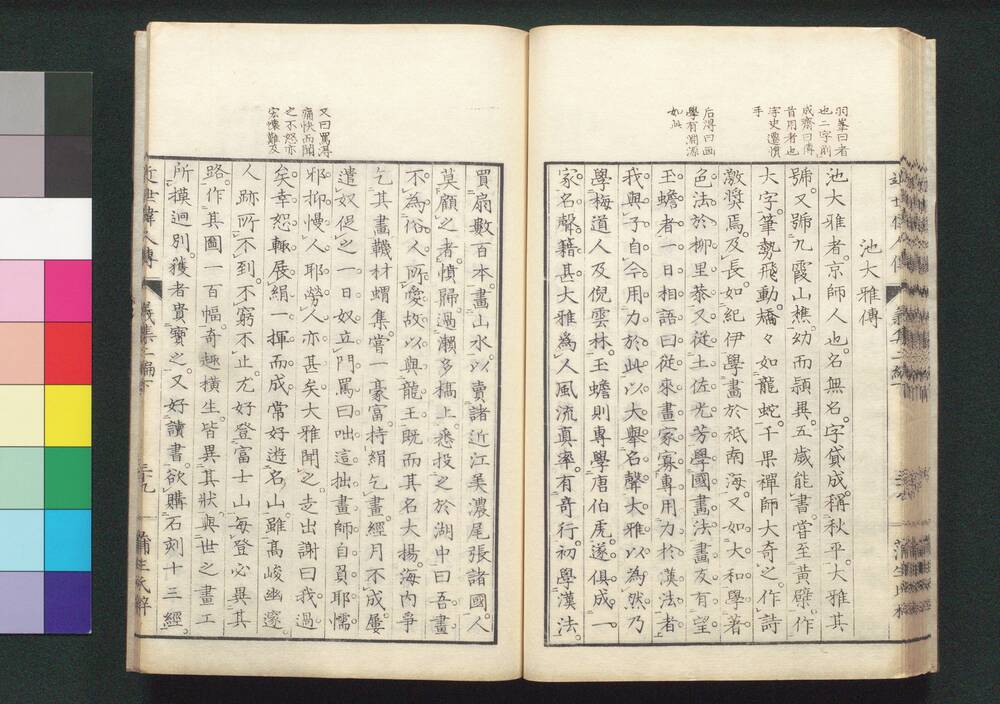 羽峯曰者
也二字前
成齋曰傳
首用者也
字史遷慣
手
學有淵源
如此
池大雅傳
池大雅者。京師人也。名無名。字貸成。稱秋平。大雅其
號。又號九霞山樵。幼而頴異。五歲能書。嘗至黃檗。作
大字。筆勢飛動。矯々如龍蛇。千果禪師大奇之。作詩
激奬焉。及長。如紀伊學畫於祇南海。又如大和學著
色法於柳里恭。又從土佐光芳學國畫法。畫友有望
玉蟾者。一日相語曰。從來畫家寡專用力於漢法者
我與子自今用力於此。以大舉名聲。大雅以為然。乃
學梅道人及倪雲林。玉蟾則專學唐伯虎。遂俱成一
家。名聲籍甚。大雅為人風流真率。有奇行。初學漢法。
又曰罵得
痛快而聞
之不怒亦
宏懷難及
買扇數百本。畫山水。以賣諸近江美濃尾張諸國。人
莫顧之者。憤歸。過瀬多橋上。悉投之於湖中曰。吾畫
不為俗人所愛。故以與龍王。既而其名大揚。海内爭
乞其畫。韈材蝟集。嘗一豪富持絹乞畫。經月不成。屢
遣奴促之。一日奴立門罵曰。咄這拙畫師自負耶。懦
邪。抑慢人耶。勞人亦甚矣。大雅聞之。走出謝曰。我過
矣。幸恕。輙展絹一揮而成。常好遊名山。雖高峻幽邃
人跡所不到。不窮不止。尤好登富士山。每登必異其
路。作其圖一百幅。奇趣橫生。皆異其狀。與世之畫工
所摸迥別。獲者貴寶之。又好讀書。欲購石刻十三經。
近世偉人傳 義集二編下 三十九 蒲生氏梓